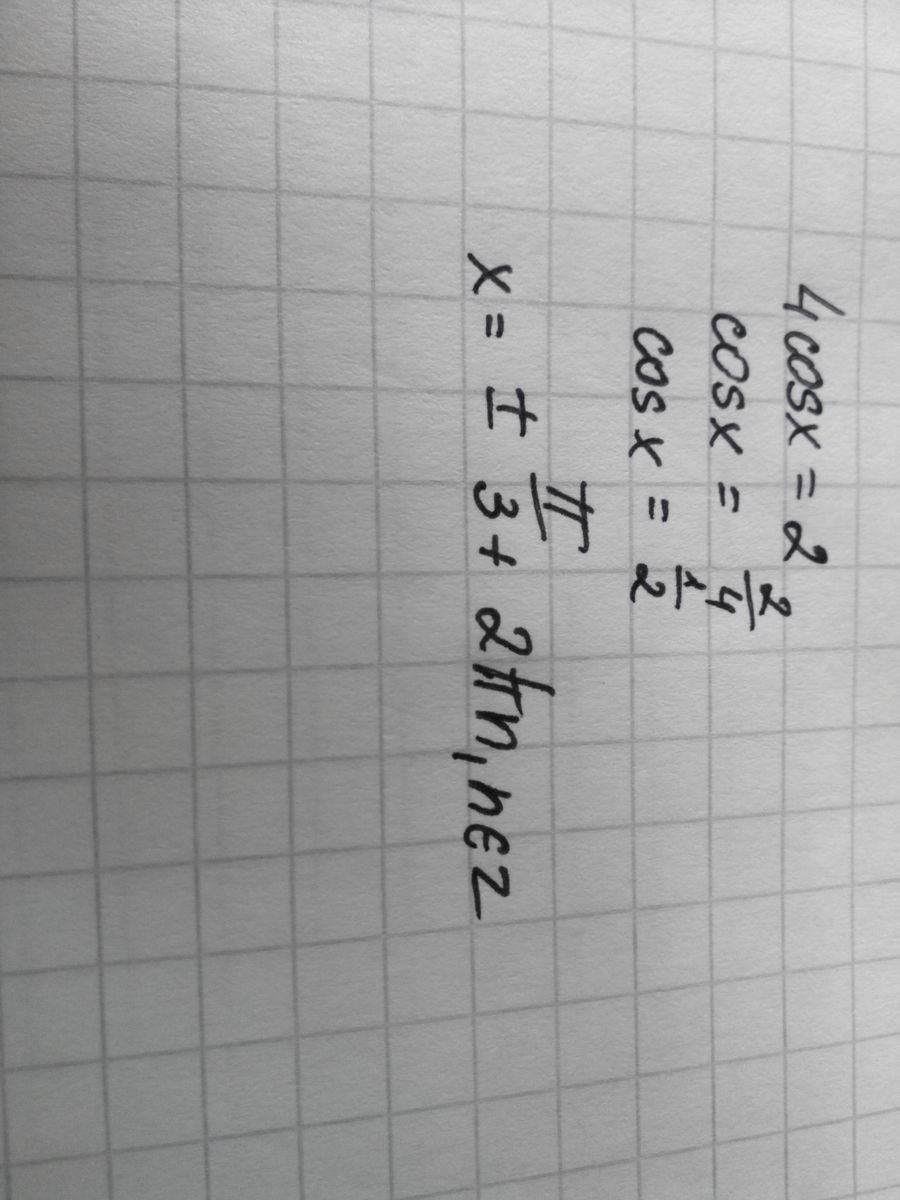 4cosx = 2
cosx = 2/4
cosx = 1/2
x = ± π/3 + 2πn, n∈Z